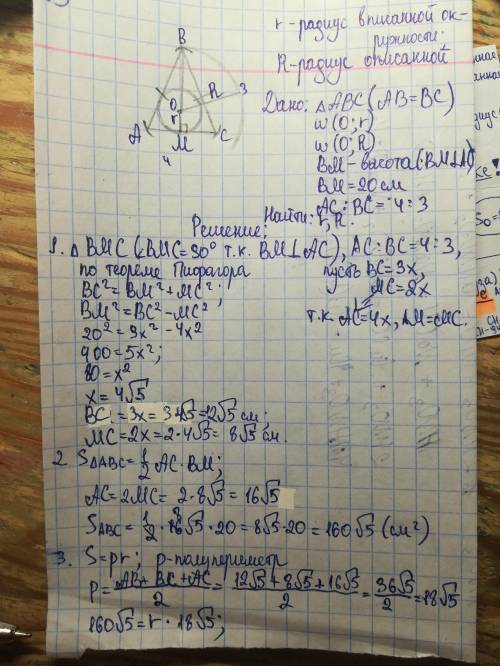 r - радиус вписанной ок-
ружности.
R-радиус описанной
B
O
R
3
r
A
M
C
4
Дано: △ABC (AB=BC)
w(O;r)
w(O;R)
BM - высота (BM⊥AC)
BM = 20 см
AC : BC = 4 : 3
Найти: r, R.
Решение:
1. △ BMC (∠BMC=90° т.к. BM⊥AC), AC:BC=4:3,
по теореме Пифагора
пусть BC=3x,
BC²=BM²+MC²;
MC=2x
BM²=BC²-MC²
т.к AC=4x, AM=MC.
20²=9x²-4x²
400=5x²;
80=x²
x=4√5
BC=3x=3·4√5=12√5 см;
MC=2x=2·4√5= 8√5 см.
2 S△ABC=1/2 AC·BM;
AC=2MC= 2·8√5=16√5
SABC=1/2·16√5·20=8√5·20=160√5 (см²)
3. S=pr; p-полупериметр
P=(AB+BC+AC)/2=(12√5+8√5+16√5)/2=36√5/2=18√5
160√5=r·18√5;